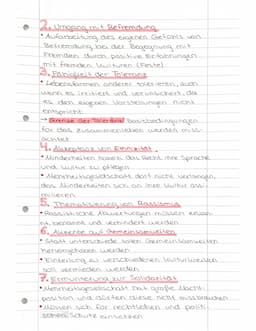 2. Umgang mit Befremdung
• Aufarbeitung des eigenen Gefühls von
Befremdung bei der Begegnung mit
Fremden durch positive Erfahrungen
mit fremden Kulturen (Feste)
3. Fähigkeit der Toleranz
• Lebensformen anderer tolerieren, auch
wenn es irritiert und verunsichert, da
es den eigenen Vorstellungen nicht
entspricht
→ Grenze der Toleranz: Basisbedingungen
für das Zusammenleben werden miss-
achtet
4. Akzeptanz von Ethnizität
• Minderheiten haben das Recht ihre Sprache
und Kultur zu pflegen
• Mehrheitsgesellschaft darf nicht verlangen,
das Minderheiten sich an ihre Kultur assi-
milieren
5. Thematisierung von Rassismus
• Rassistische Abwertungen müssen erkan-
nt, benannt und verhindert werden
6. Akzente auf Gemeinsamkeiten
• Statt Unterschiede sollen Gemeinsamkeiten
hervorgehoben werden
• Einteilung zu verschiedenen Kulturkreisen
soll vermieden werden
7. Ermunterung zur Solidarität
• Mehrheitsgesellschaft hat große Macht-
position und dürfen diese nicht missbrauchen
• Müssen sich für rechtlichen und politi-
Schutz einsetzen